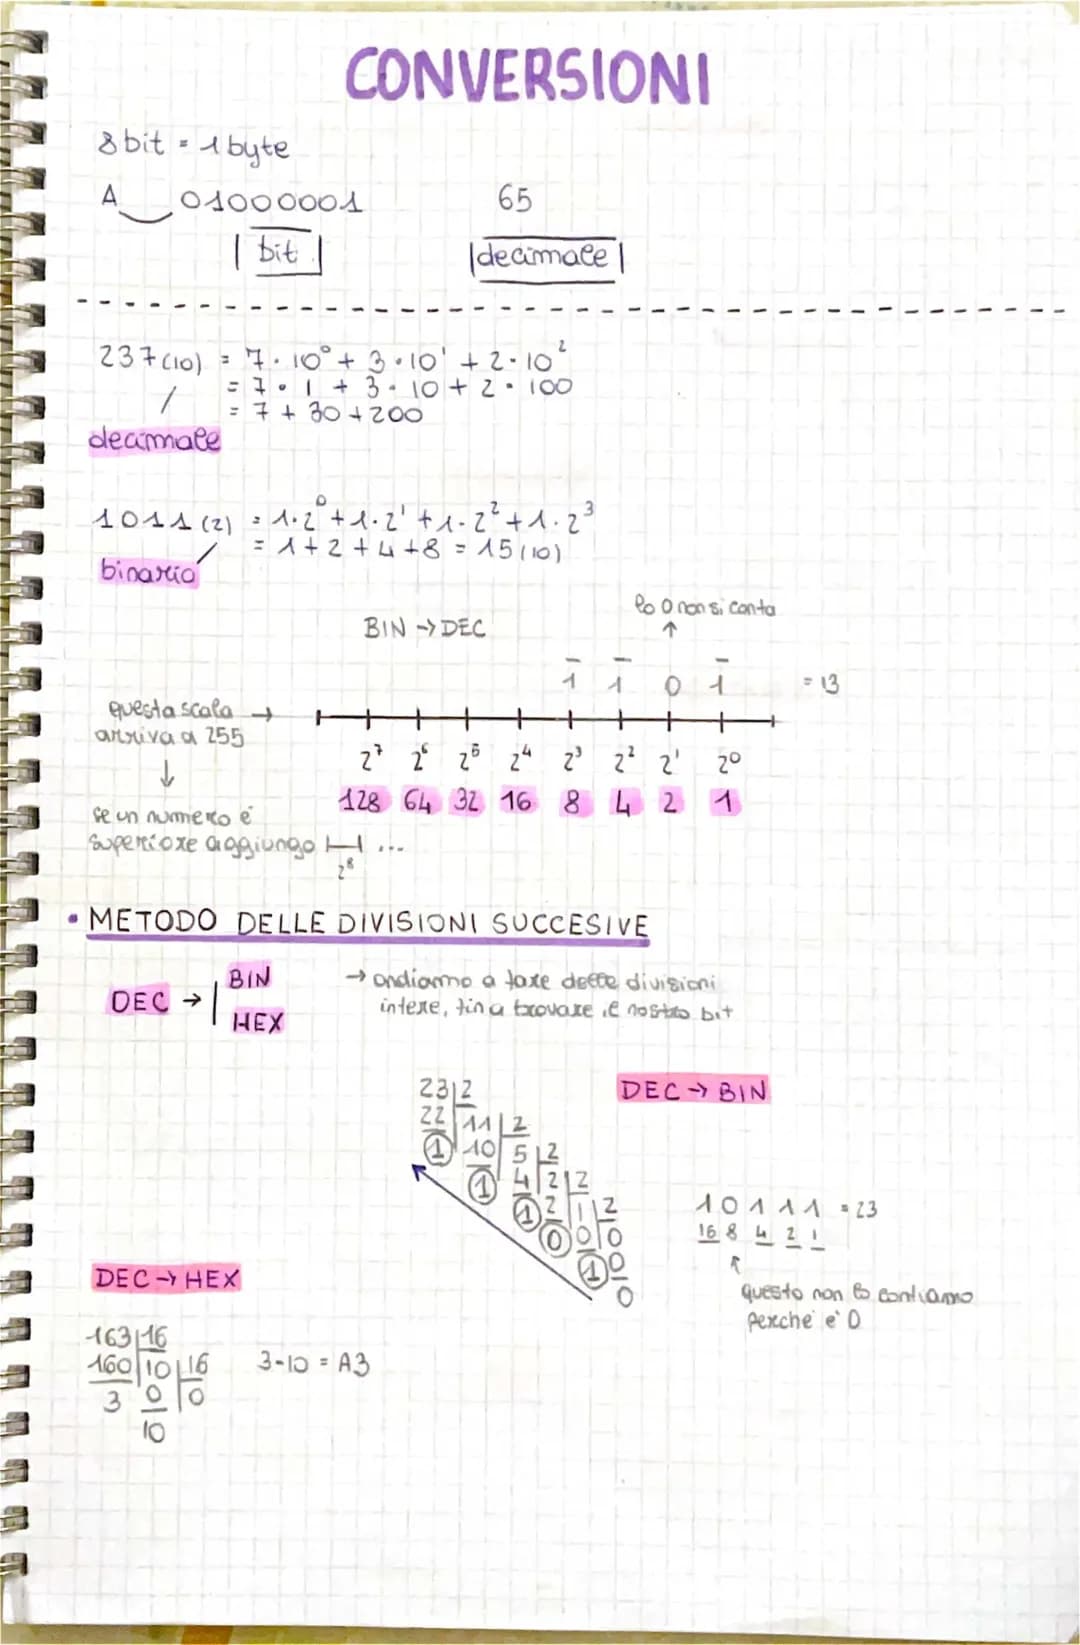 CONVERSIONI
8 bit = 1 byte
A 01000001 65
bit decimale
237 (10) = 7 · 10⁰ + 3 · 10¹ + 2 · 10²
= 7 · 1 + 3 · 10 + 2 · 100
= 7 + 30 + 200
decimale
1011 (2) = 1·2⁰ + 1·2¹ + 1·2² + 1·2³
= 1 + 2 + 4 + 8 = 15 (10)
binario
lo 0 non si conta
BIN → DEC ↑
1 1 0 1 = 13
questa scala →
arriva a 255
↓
2⁷ 2⁶ 2⁵ 2⁴ 2³ 2² 2¹ 2⁰
128 64 32 16 8 4 2 1
se un numero é
superiore aggiungo ...
2⁸
• METODO DELLE DIVISIONI SUCCESIVE
DEC → BIN
HEX
→ andiamo a fare delle divisioni
intere, fin a trovare il nostro bit
DEC → BIN
23 2
22 11 2
1 10 5 2
1 4 2 2
1 2 1 2
0 0 0
1 0
0
10111 = 23
16 8 4 2 1
questo non lo contiamo
perché é 0
DEC → HEX
163 16
160 10 16 3-10 = A3
3 0 0
10